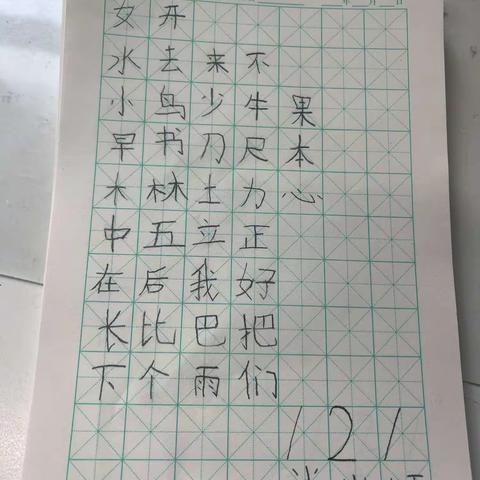 年 月 日
女 开
水 去 来 不
小 鸟 少 牛 果
早 书 刀 尺 本
木 林 土 力 心
中 五 立 正
在 后 我 好
长 比 巴 把
下 个 雨 们
121